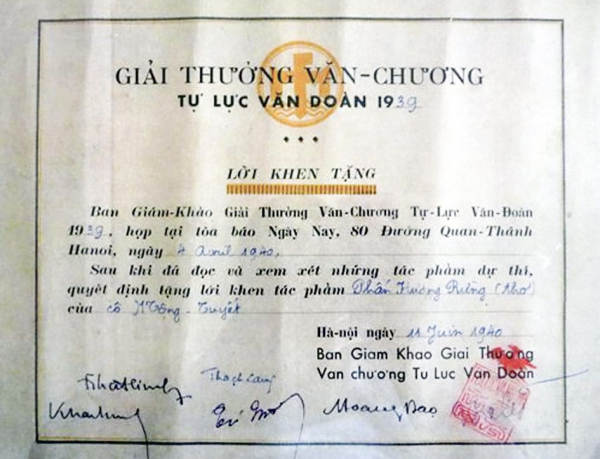 GIẢI THƯỞNG VĂN-CHƯƠNG
TỰ LỰC VĂN ĐOÀN 1939
LỜI KHEN TẶNG
Ban Giám-Khảo Giải Thưởng Văn-Chương Tự-Lực Văn-Đoàn
1939, họp tại tòa báo Ngày Nay, 80 Đường Quan-Thánh
Hanoi, ngày 4 Avril 1940,
Sau khi đã đọc và xem xét những tác phẩm dự thi,
quyết định tặng lời khen tác phẩm Phấn Hương Rừng (thơ)
của cô Mộng-Tuyết
Hà-nội ngày 11 Juin 1940
Ban Giam Khao Giai Thuong
Van chuong Tu Luc Van Doan
Nhatlinh
Thạch Lam
Khaihung
Tú Mỡ
Hoang Dao